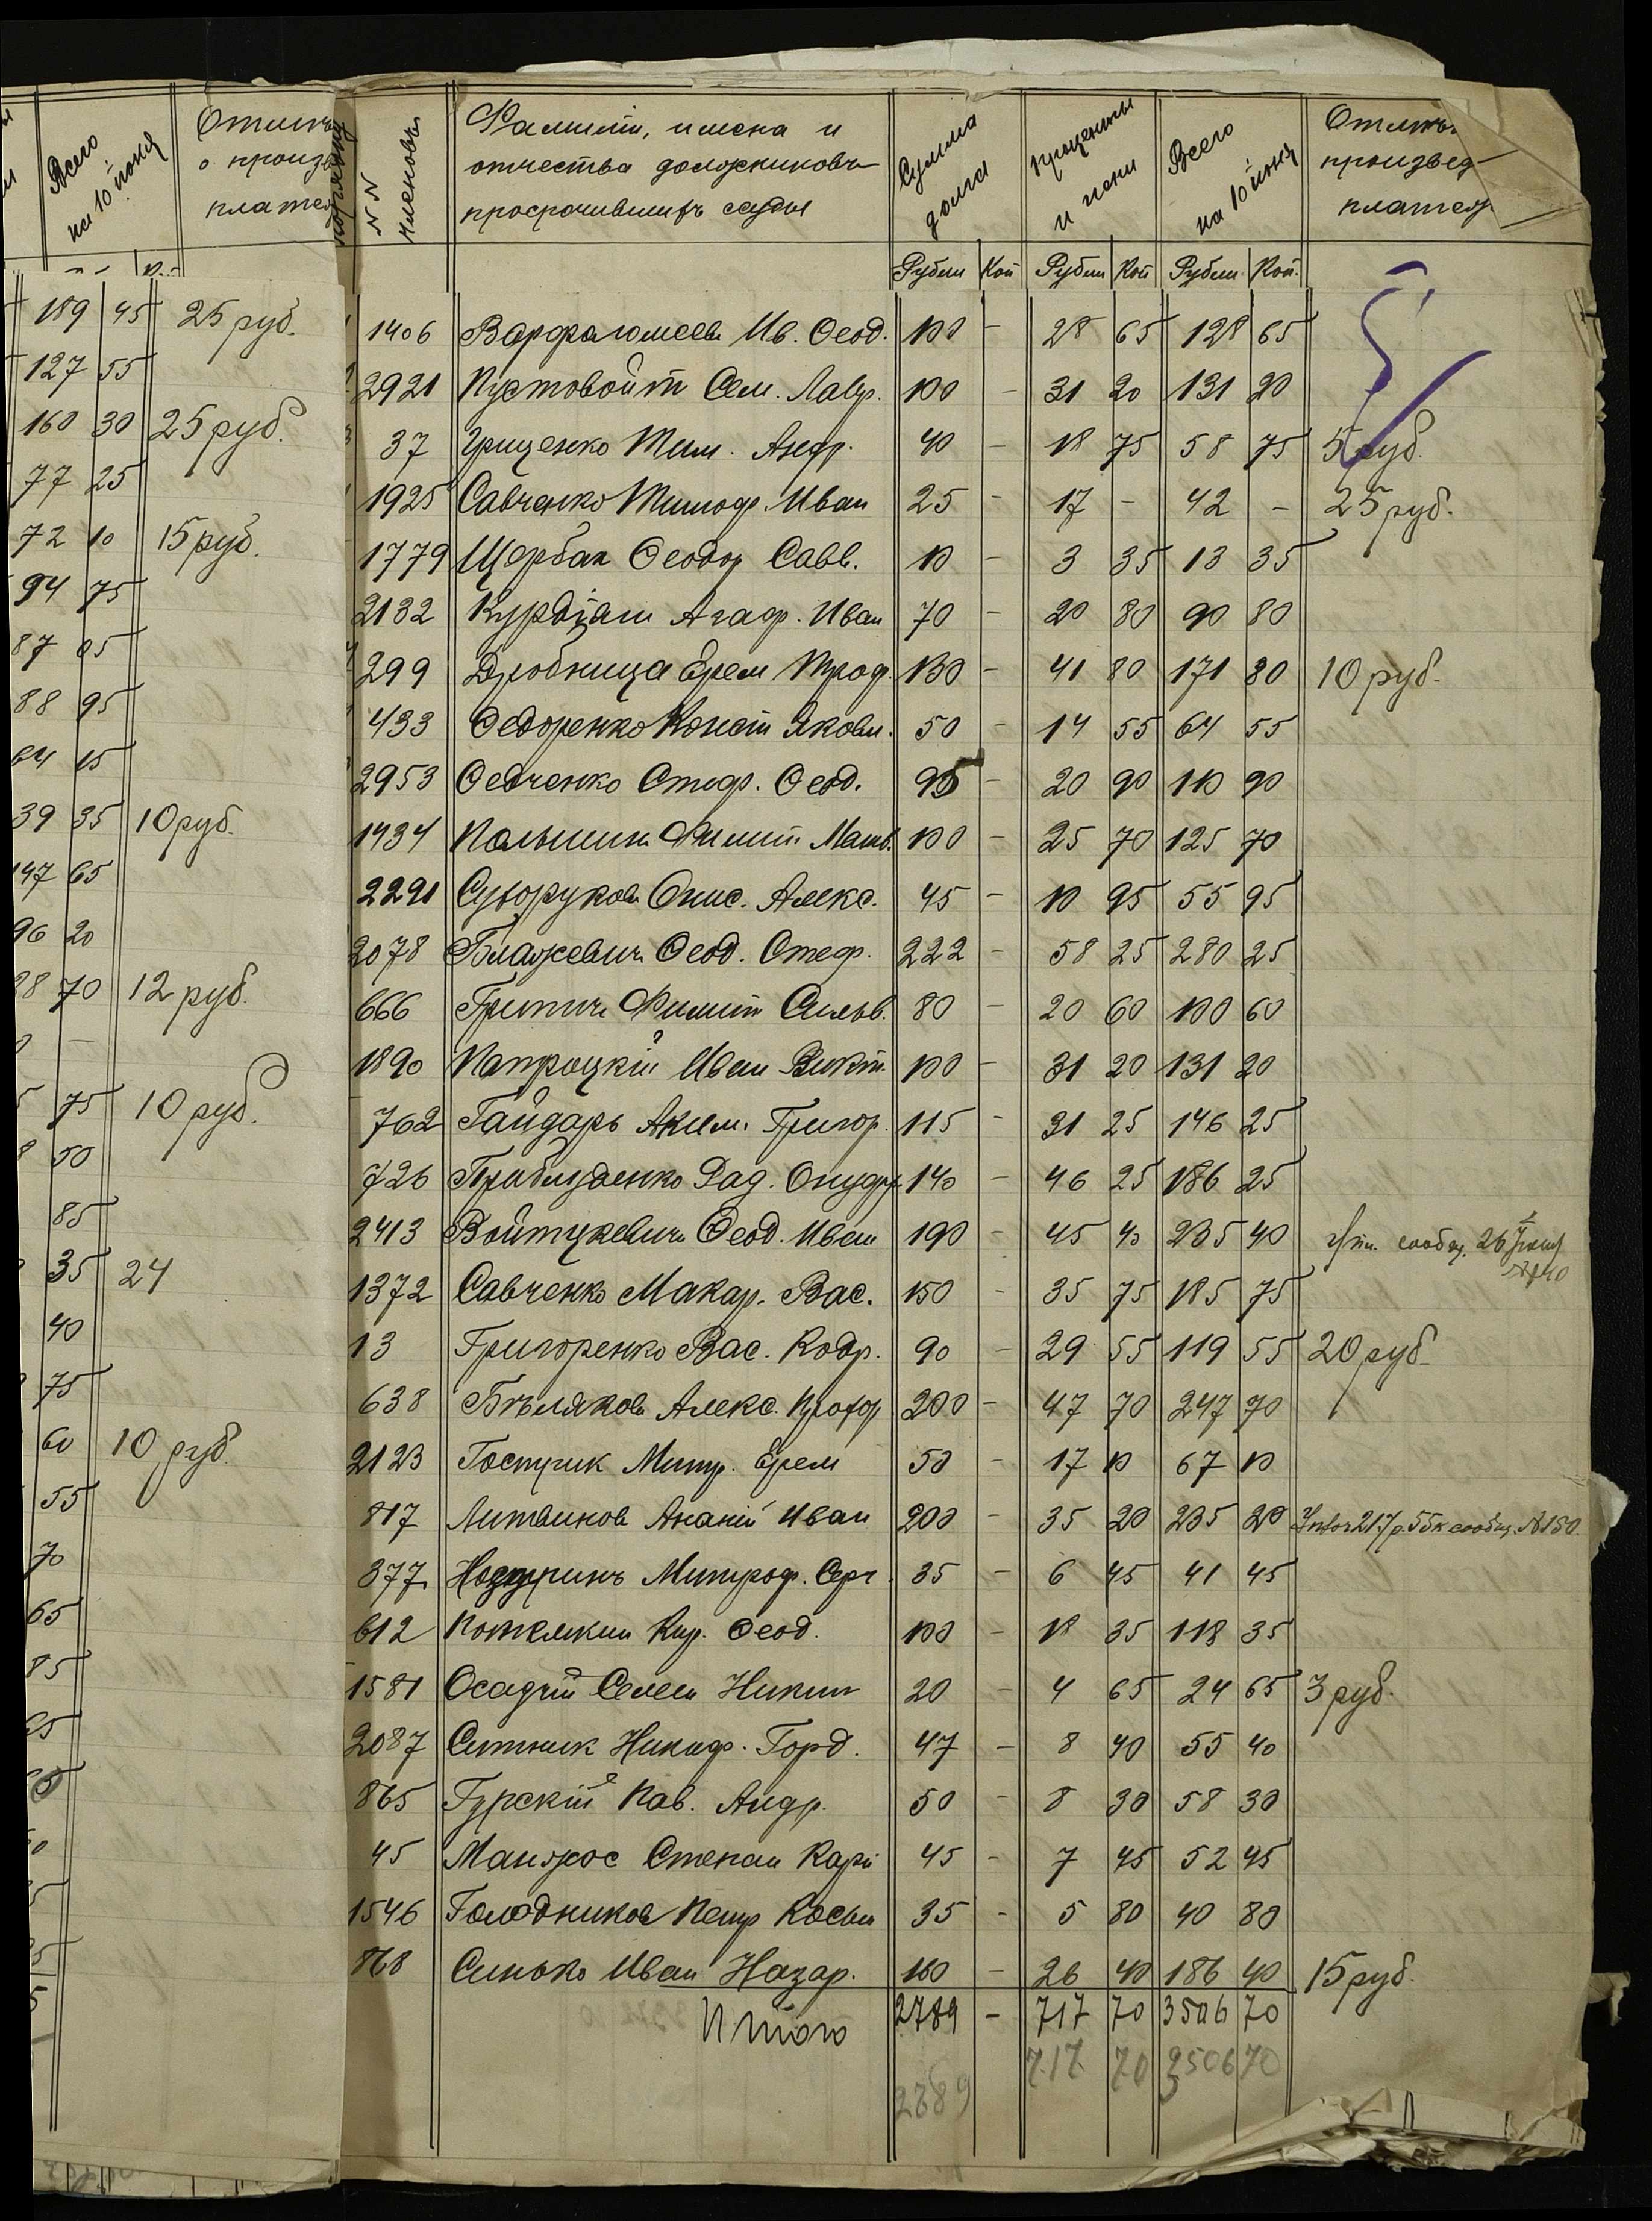 Всего на 10 іюня
о произв
платеж
189 45 25 руб.
127 55
160 30 25 руб.
77 25
72 10 15 руб.
94 75
87 05
88 95
64 15
39 35 10 руб.
147 65
96 20
38 70 12 руб.
75 10 руб.
50
85
35 24
40
75
60 10 руб.
55
70
65
85
№№ членовъ
Фамиліи, имена и
отчества должниковъ
просрочившихъ ссуды
Сумма долга
Проценты и пени
Всего на 10 іюня
произвед
платеж
Рубли Коп Рубли Коп Рубли Коп.
1406 Варфоломеевъ Ив. Ѳеод. 100 - 28 65 128 65
2921 Пустовойт Сем. Лавр. 100 - 31 20 131 20
37 Грищенко Тим. Андр. 40 - 18 75 58 75 5 руб.
1925 Савченко Тимоф. Иван 25 - 17 - 42 - 25 руб.
1779 Щербак Ѳеодор Савв. 10 - 3 35 13 35
2132 Агаф. Иван 70 - 20 80 90 80
299 Дробница Ерем Троф. 130 - 41 80 171 80 10 руб.
433 Ѳедоренко Конст Яковл. 50 - 14 55 64 55
2953 Ѳедченко Стеф. Ѳеод. 95 - 20 90 110 90
1434 Филип. Матв. 100 - 25 70 125 70
2291 Сухоруковъ Онис. Алекс. 45 - 10 95 55 95
2078 Блажевичъ Ѳеод. Стеф. 222 - 58 25 280 25
666 Филип Сильв. 80 - 20 60 100 60
1890 Папроцкій Иван Викт. 100 - 31 20 131 20
762 Гайдарь Аким. Григор. 115 - 31 25 146 25
726 Приблуденко Рад. Онуфр. 140 - 46 25 186 25
2413 Войтукевичъ Ѳеод. Иван 190 - 45 40 235 40 сообщ. 26
1372 Савченко Макар. Вас. 150 - 35 75 185 75
13 Григоренко Вас. Кодр. 90 - 29 55 119 55 20 руб.
638 Бѣляковъ Алекс. Прохор 200 - 47 70 247 70
2123 Гострик Митр. Ерем 50 - 17 10 67 10
817 Литвинов Ананій Иван 200 - 35 20 235 20 сообщ. №150
377 Митроф. Серг. 35 - 6 45 41 45
612 Потемкин Кир. Ѳеод. 100 - 18 35 118 35
1581 Осадчій Семен Никит 20 - 4 65 24 65 3 руб.
2087 Ситник Никиф. Горд. 47 - 8 40 55 40
865 Гурскій Пав. Андр. 50 - 8 30 58 30
45 Манжос Степан Карп 45 - 7 45 52 45
1546 Голодников Петр Косьм 35 - 5 80 40 80
868 Синько Иван Назар. 160 - 26 40 186 40 15 руб.
Итого 2789 - 717 70 3506 70
717 70 3506 70
2289